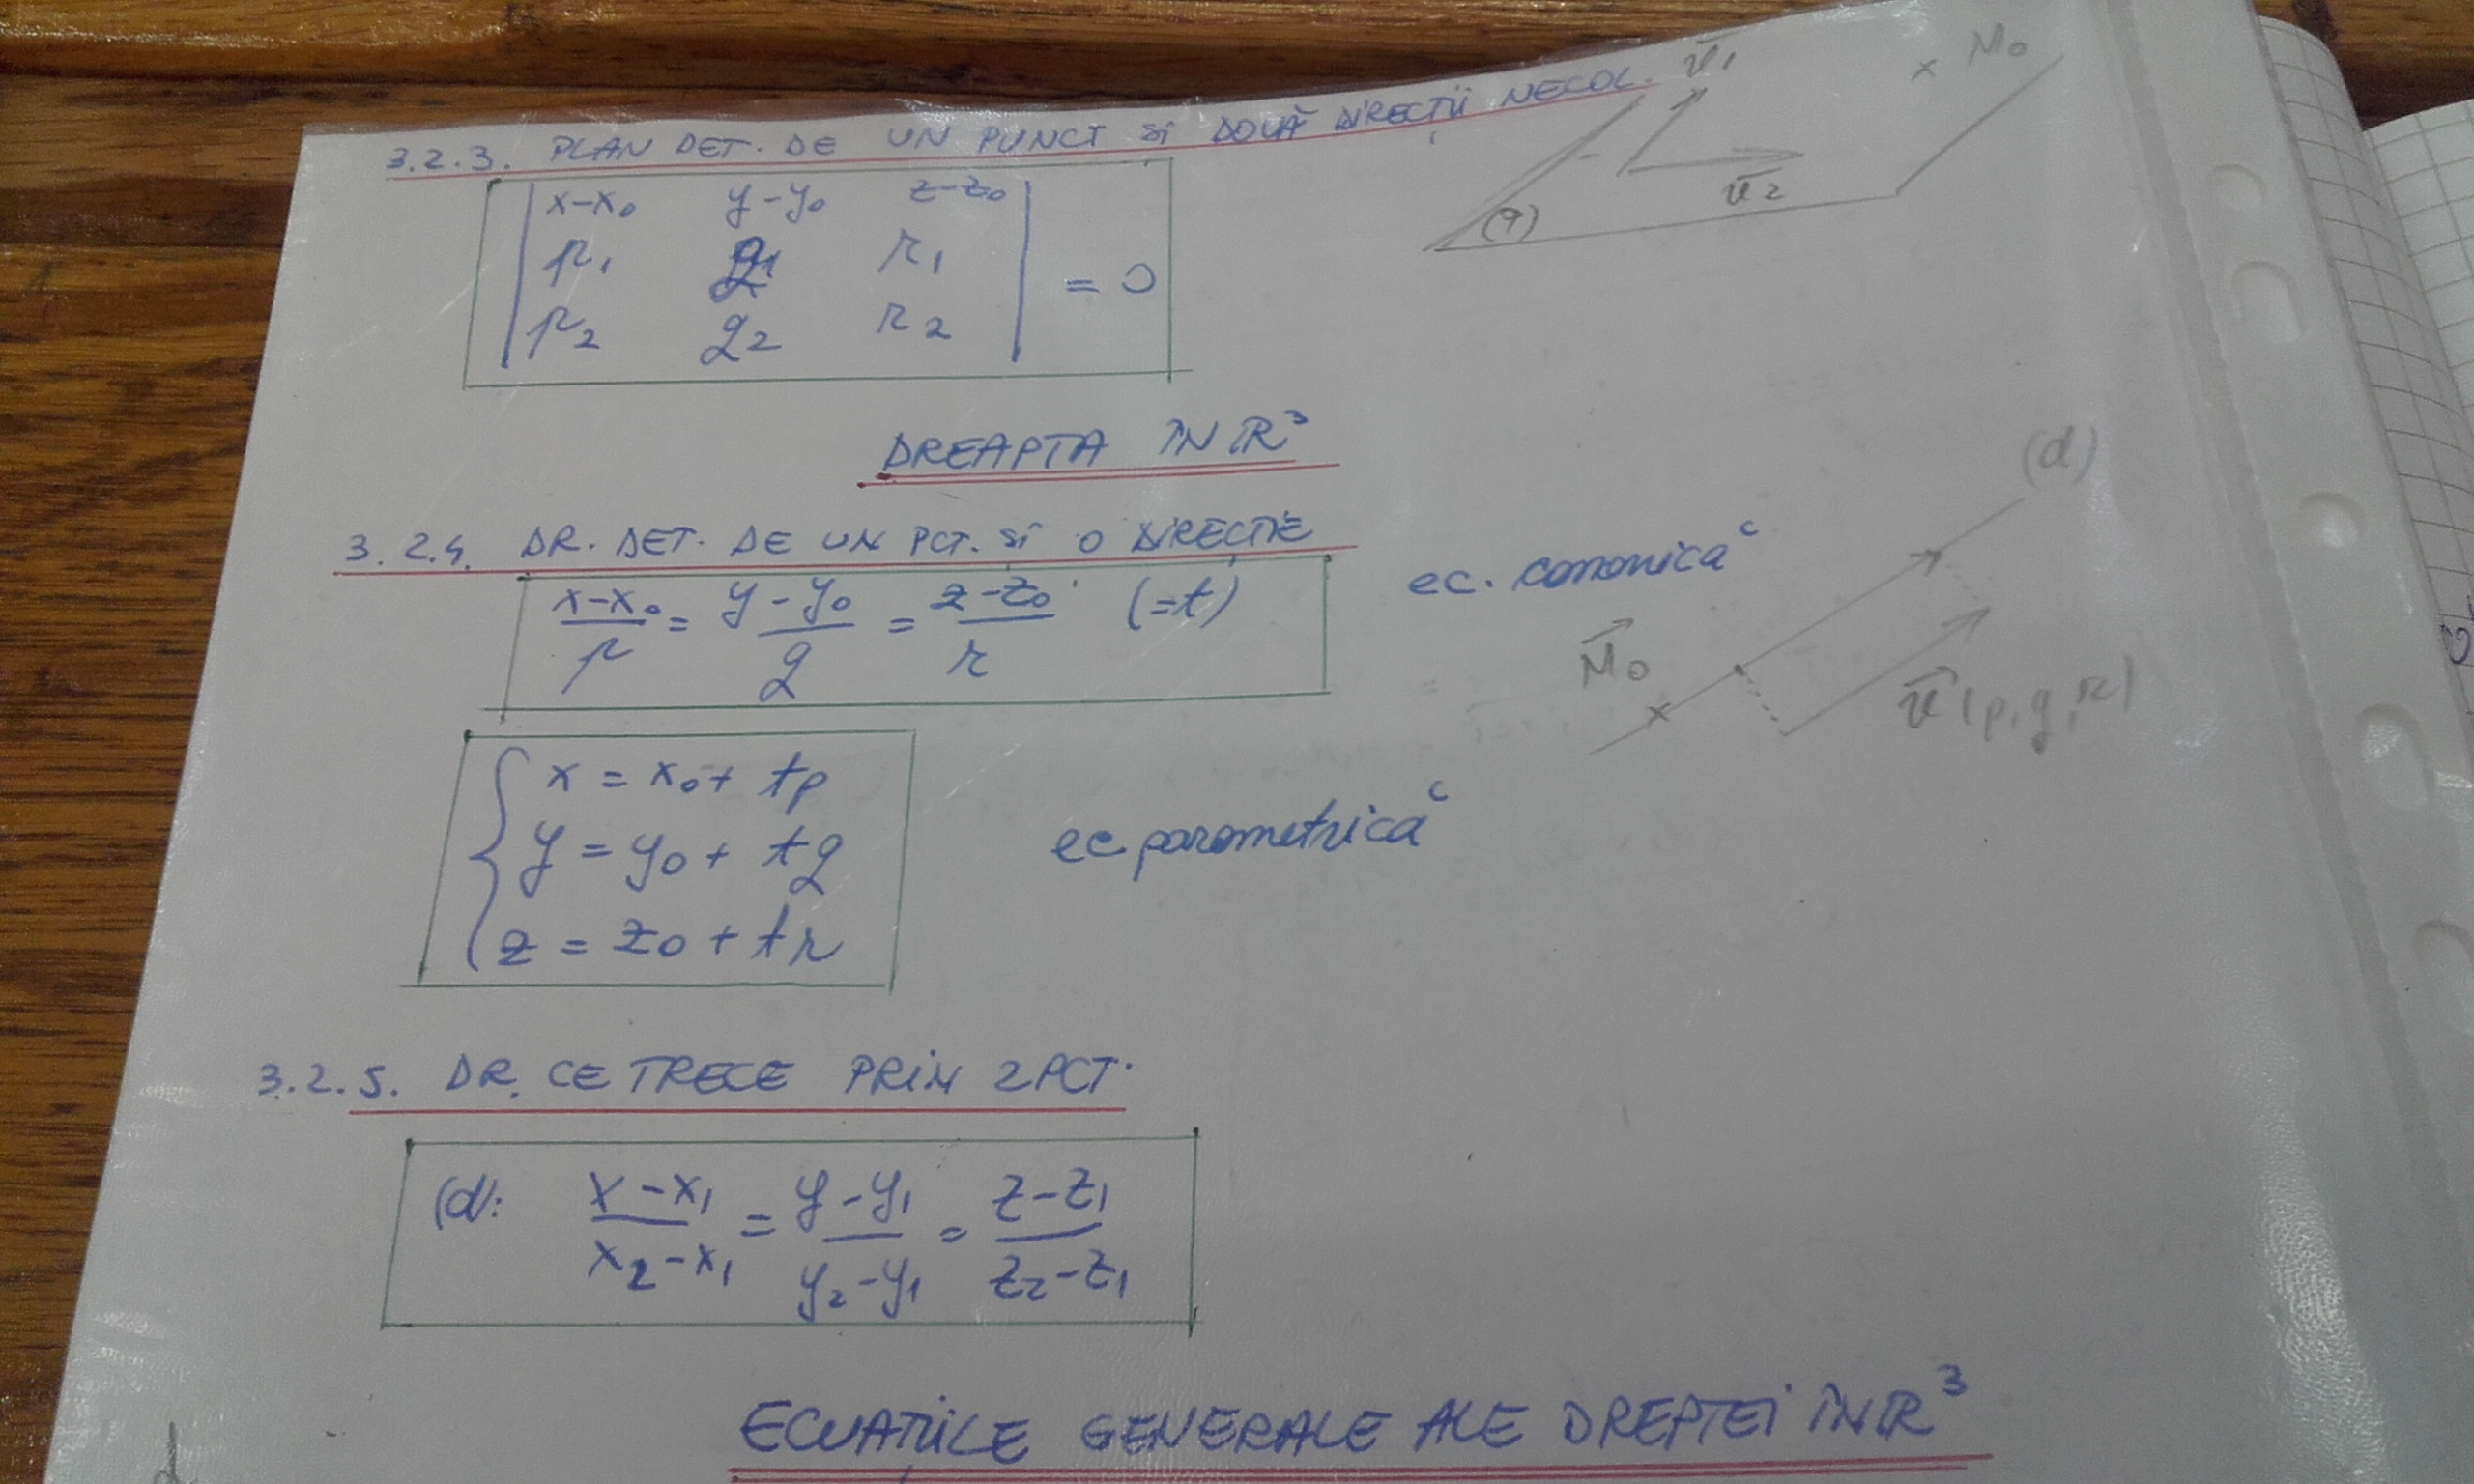 3.2.3. PLAN DET. DE UN PUNCT ȘI DOUĂ DIRECȚII NECOL.
v̄1
M0
v̄2
(P)
| x-x0 y-y0 z-z0 |
| p1 q1 r1 | = 0
| p2 q2 r2 |
DREAPTA ÎN IR³
3.2.4. DR. DET. DE UN PCT. ȘI O DIRECȚIE
(x-x0)/p = (y-y0)/q = (z-z0)/r (=t)
ec. canonică
(d)
M⃗0
v⃗(p,q,r)
{ x = x0 + tp
y = y0 + tq
z = z0 + tr
ec parametrică
3.2.5. DR. CE TRECE PRIN 2 PCT.
(d): (x-x1)/(x2-x1) = (y-y1)/(y2-y1) = (z-z1)/(z2-z1)
ECUAȚIILE GENERALE ALE DREPTEI ÎN IR³